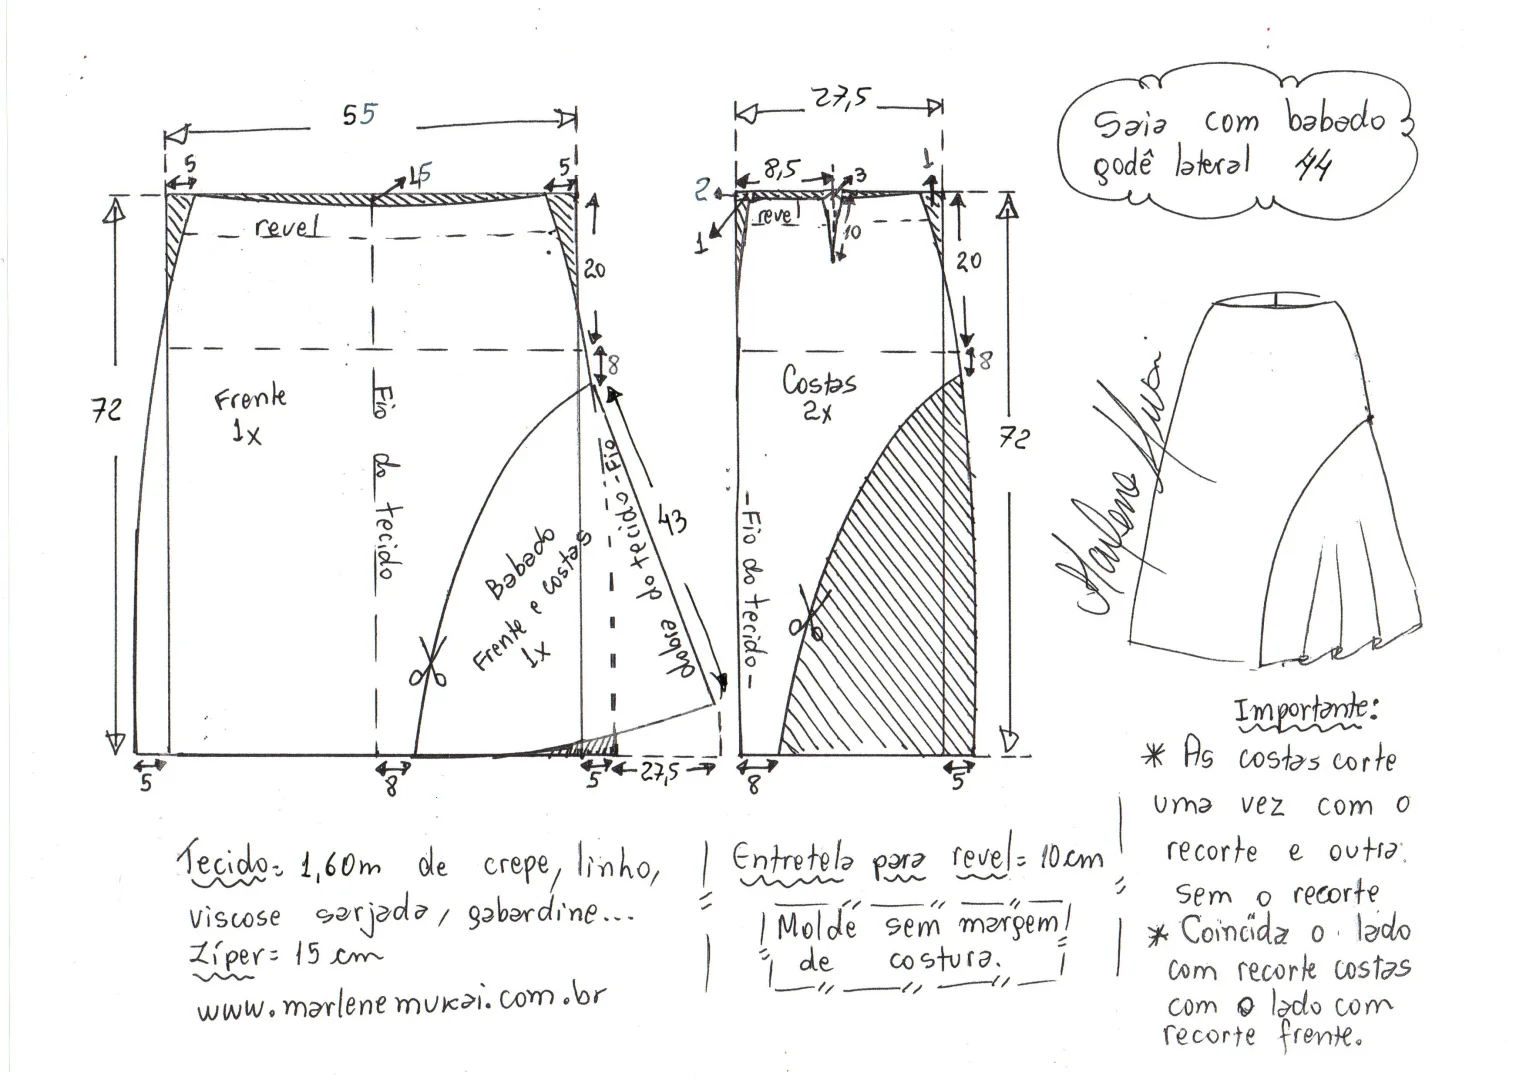 55
5
1,5
5
revel
20
8
72
Frente
1x
Fio do tecido
43
Babado
Frente e costas
1x
Fio do tecido - dobra
5
8
5
27,5
27,5
8,5
3
1
2
1
revel
10
20
8
Costas
2x
72
- Fio do tecido -
8
5
Saia com babado
godê lateral 44
Marlene Mukai
Tecido= 1,60m de crepe, linho,
viscose sarjada, gabardine...
Zíper= 15 cm
www.marlenemukai.com.br
Entretela para revel= 10cm
Molde sem margem
de costura.
Importante:
* As costas corte
uma vez com o
recorte e outra
sem o recorte
* Coincida o lado
com recorte costas
com o lado com
recorte frente.